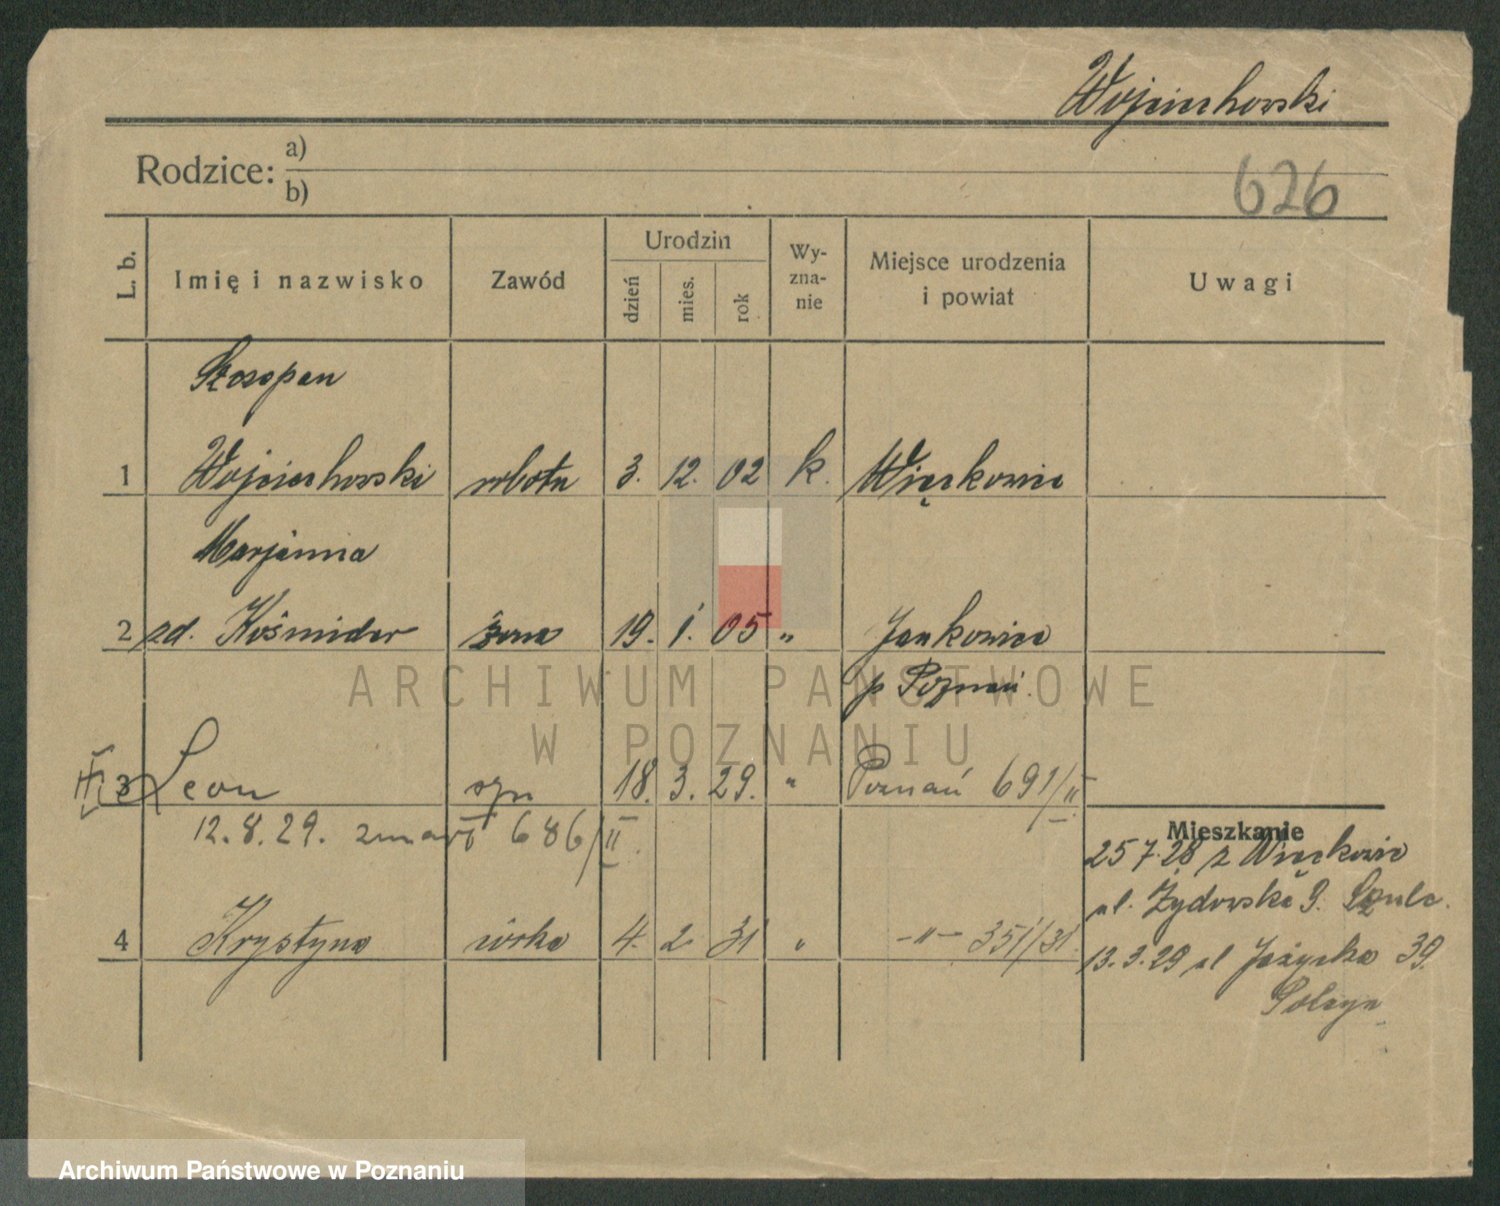 Wojciechowski
Rodzice: a)
b)
626
L. b. Imię i nazwisko Zawód Urodzin dzień mies. rok Wy-zna-nie Miejsce urodzenia i powiat Uwagi
Szczepan
1 Wojciechowski robotn 3. 12. 02 k. Więckowice
Marjanna
2 zd. Kośmider żona 19. 1. 05 " Jankowice
p Poznań.
3 Leon syn 18. 3. 29. " Poznań 691/II
12.8.29. zmarł 686/II.
Mieszkanie
25 7.28 z Więckowic
ul. Żydowska 9. Szulc.
4 Krystyna córka 4. 2 31 " -"- 351/31.
13.3.29 ul Jeżycka 39.
ARCHIWUM PAŃSTWOWE
W POZNANIU
Archiwum Państwowe w Poznaniu